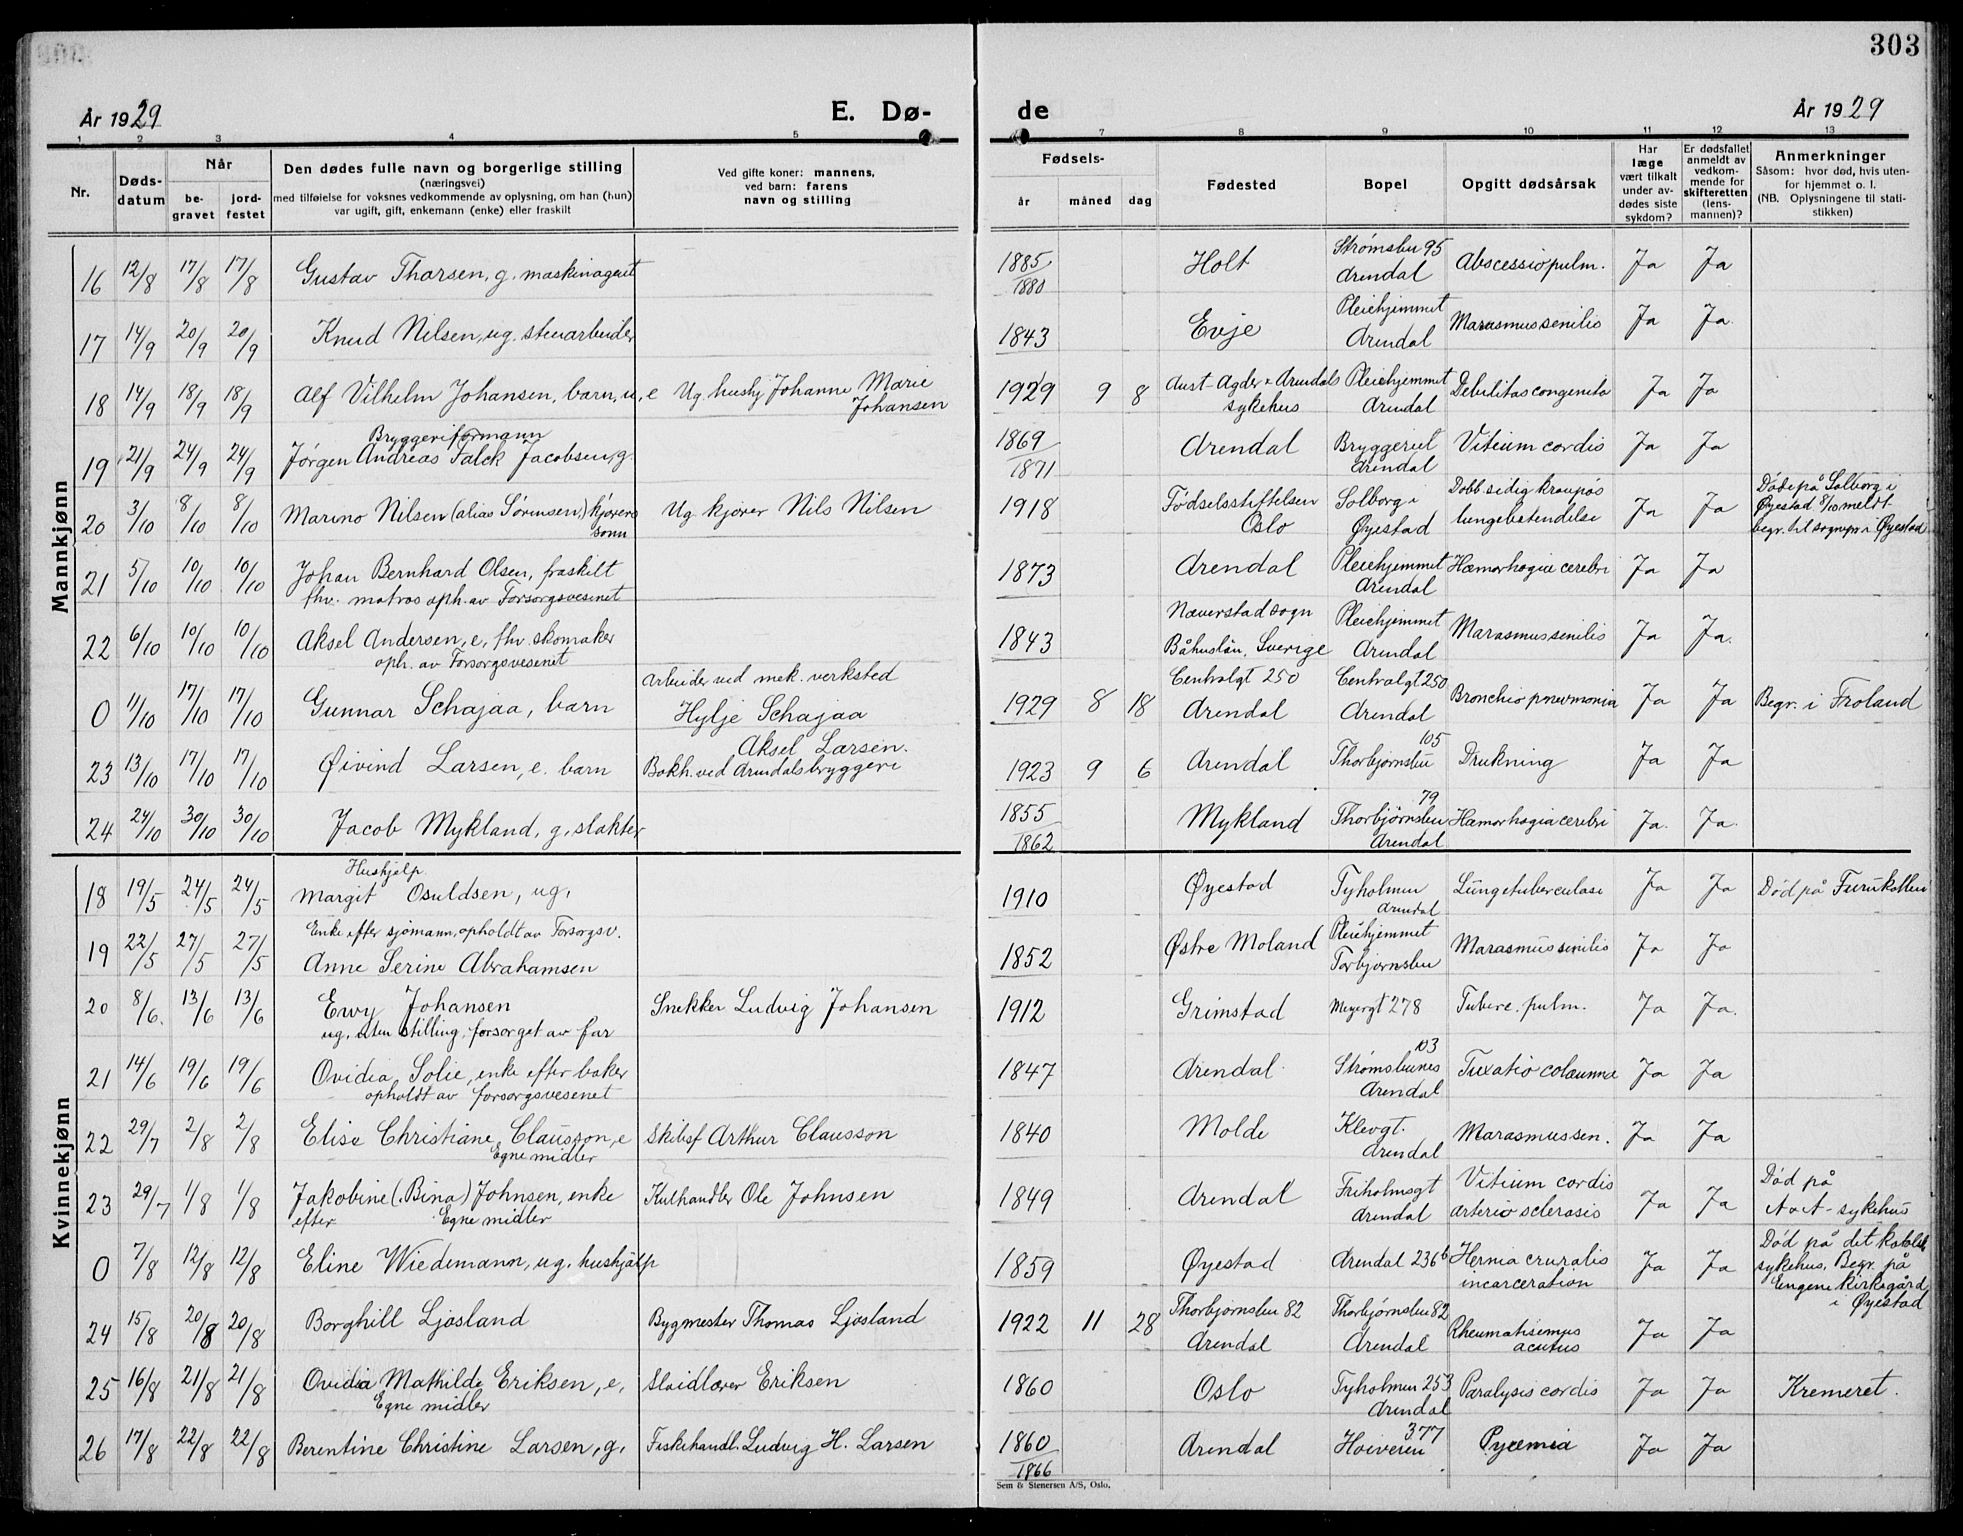 303
År 1929 E. Dø- de År 1929
1 2 3 4 5 7 8 9 10 11 12 13
Nr. Døds-datum Når be-gravet jord-festet
Den dødes fulle navn og borgerlige stilling
(næringsvei)
med tilføielse for voksnes vedkommende av oplysning, om han (hun)
var ugift, gift, enkemann (enke) eller fraskilt
Ved gifte koner: mannens,
ved barn: farens
navn og stilling
Fødsels- år måned dag
Fødested
Bopel
Opgitt dødsårsak
Har læge vært tilkalt under av-dødes siste sykdom?
Er dødsfallet anmeldt av vedkom-mende for skifteretten (lens-mannen)?
Anmerkninger
Såsom: hvor død, hvis uten-for hjemmet o. l.
(NB. Oplysningene til stati-stikken)
Mannkjønn
16 12/8 17/8 17/8 Gustav Thorsen, g. maskinagent 1885/1880 Holt Strømsbu 95 Arendal Abscessio pulm. Ja Ja
17 14/9 20/9 20/9 Knud Nilsen, ug. stenarbeider 1843 Evje Pleiehjemmet Arendal Marasmus senilis Ja Ja.
18 14/9 18/9 18/9 Alf Vilhelm Johansen, barn, u. e Ug. hushj Johanne Marie Johansen 1929 9 8 Aust-Agder & Arendals sykehus Pleiehjemmet Arendal Debilitas congenita Ja Ja
19 21/9 24/9 24/9 Bryggeriformann Jørgen Andreas Falck Jacobsen, g. 1869/1871 Arendal Bryggeriet Arendal Vitium cordis Ja Ja
20 3/10 8/10 8/10 Marino Nilsen (alias Sørensen,) kjørers sønn Ug. kjører Nils Nilsen 1918 Fødselsstiftelsen Oslo Solborg i Øyestad Dobb.sidig krupøs lungebetendelse Ja Ja Døde på Solborg i Øyestad 8/10 meldt begr. til sognepr. i Øyestad
21 5/10 10/10 10/10 Johan Bernhard Olsen, fraskilt fhv. matros oph. av Forsorgsvesenet 1873 Arendal Pleiehjemmet Arendal Hæmorhagia cerebri Ja Ja
22 6/10 10/10 10/10 Aksel Andersen, e, fhv. skomaker oph. av Forsorgsvesenet 1843 Næverstad sogn Båhuslän, Sverige Pleiehjemmet Arendal Marasmus senilis Ja Ja.
0 11/10 17/10 17/10 Gunnar Schajaa, barn Arbeider ved mek. verksted Hylje Schajaa 1929 8 18 Centralgt 250 Arendal Centralgt 250 Arendal Bronchio pnevmonia Ja Ja Begr. i Froland
23 13/10 17/10 17/10 Øivind Larsen, e. barn Aksel Larsen. Bokh. ved Arendals bryggeri 1923 9 6 Arendal Thorbjørnsbu 105 Drukning Ja Ja
24 24/10 30/10 30/10 Jacob Mykland, g, slakter 1855/1862 Mykland Thorbjørnsbu 79 Arendal Hæmorhagia cerebri Ja. Ja.
Kvinnekjønn
18 19/5 24/5 24/5 Hushjelp Margit Osuldsen, ug, 1910 Øyestad Tyholmen Arendal Lungetuberculose Ja Ja Død på Furukollen
19 22/5 27/5 27/5 Enke efter sjømann, opholdt av Forsorgsv. Anne Serine Abrahamsen 1852 Østre Moland Pleiehjemmet Torbjørnsbu Marasmus senilis Ja Ja
20 8/6. 13/6 13/6 Ewy Johansen ug. uten stilling, forsørget av far Snekker Ludvig Johansen 1912 Grimstad Meyergt 278 Tuberc. pulm. Ja Ja.
21 14/6 19/6 19/6 Ovidia Solie, enke efter baker opholdt av forsorgsvesenet 1847 Arendal Strømsbunes 103 Arendal Ja Ja
22 29/7 2/8 2/8 Elise Christiane Clausson, e Egne midler Skibsf Arthur Clausson 1840 Molde Klevgt. Arendal Marasmus sen. Ja Ja
23 29/7 1/8 1/8 Jakobine (Bina) Johnsen, enke efter Egne midler Kulhandler Ole Johnsen 1849 Arendal Friholmsgt Arendal Vitium cordis Arterio sclerosis Ja Ja Død på A & A-sykehus
0 7/8 12/8 12/8 Eline Wiedemann, ug, hushjælp 1859 Øyestad Arendal 236b Hernia cruralis incarceration Ja Ja Død på det katolik. sykehus. Begr. på Engene kirkegård i Øyestad
24 15/8 20/8 20/8 Borghill Ljosland Bygmester Thomas Ljosland 1922 11 28 Thorbjørnsbu 82 Arendal Thorbjørnsbu 82 Arendal Rheumatisemus acutus Ja Ja
25 16/8 21/8 21/8 Ovidia Mathilde Eriksen, e, Egne midler Eriksen 1860 Oslo Tyholmen 253 Arendal Paralysis cordis Ja Ja Kremeret.
26 17/8 22/8 22/8 Berentine Christine Larsen, g, Fiskehandl. Ludvig H. Larsen 1860/1866 Arendal Hoiveien 377 Pyæmia Ja Ja
Sem & Stenersen A/S, Oslo.